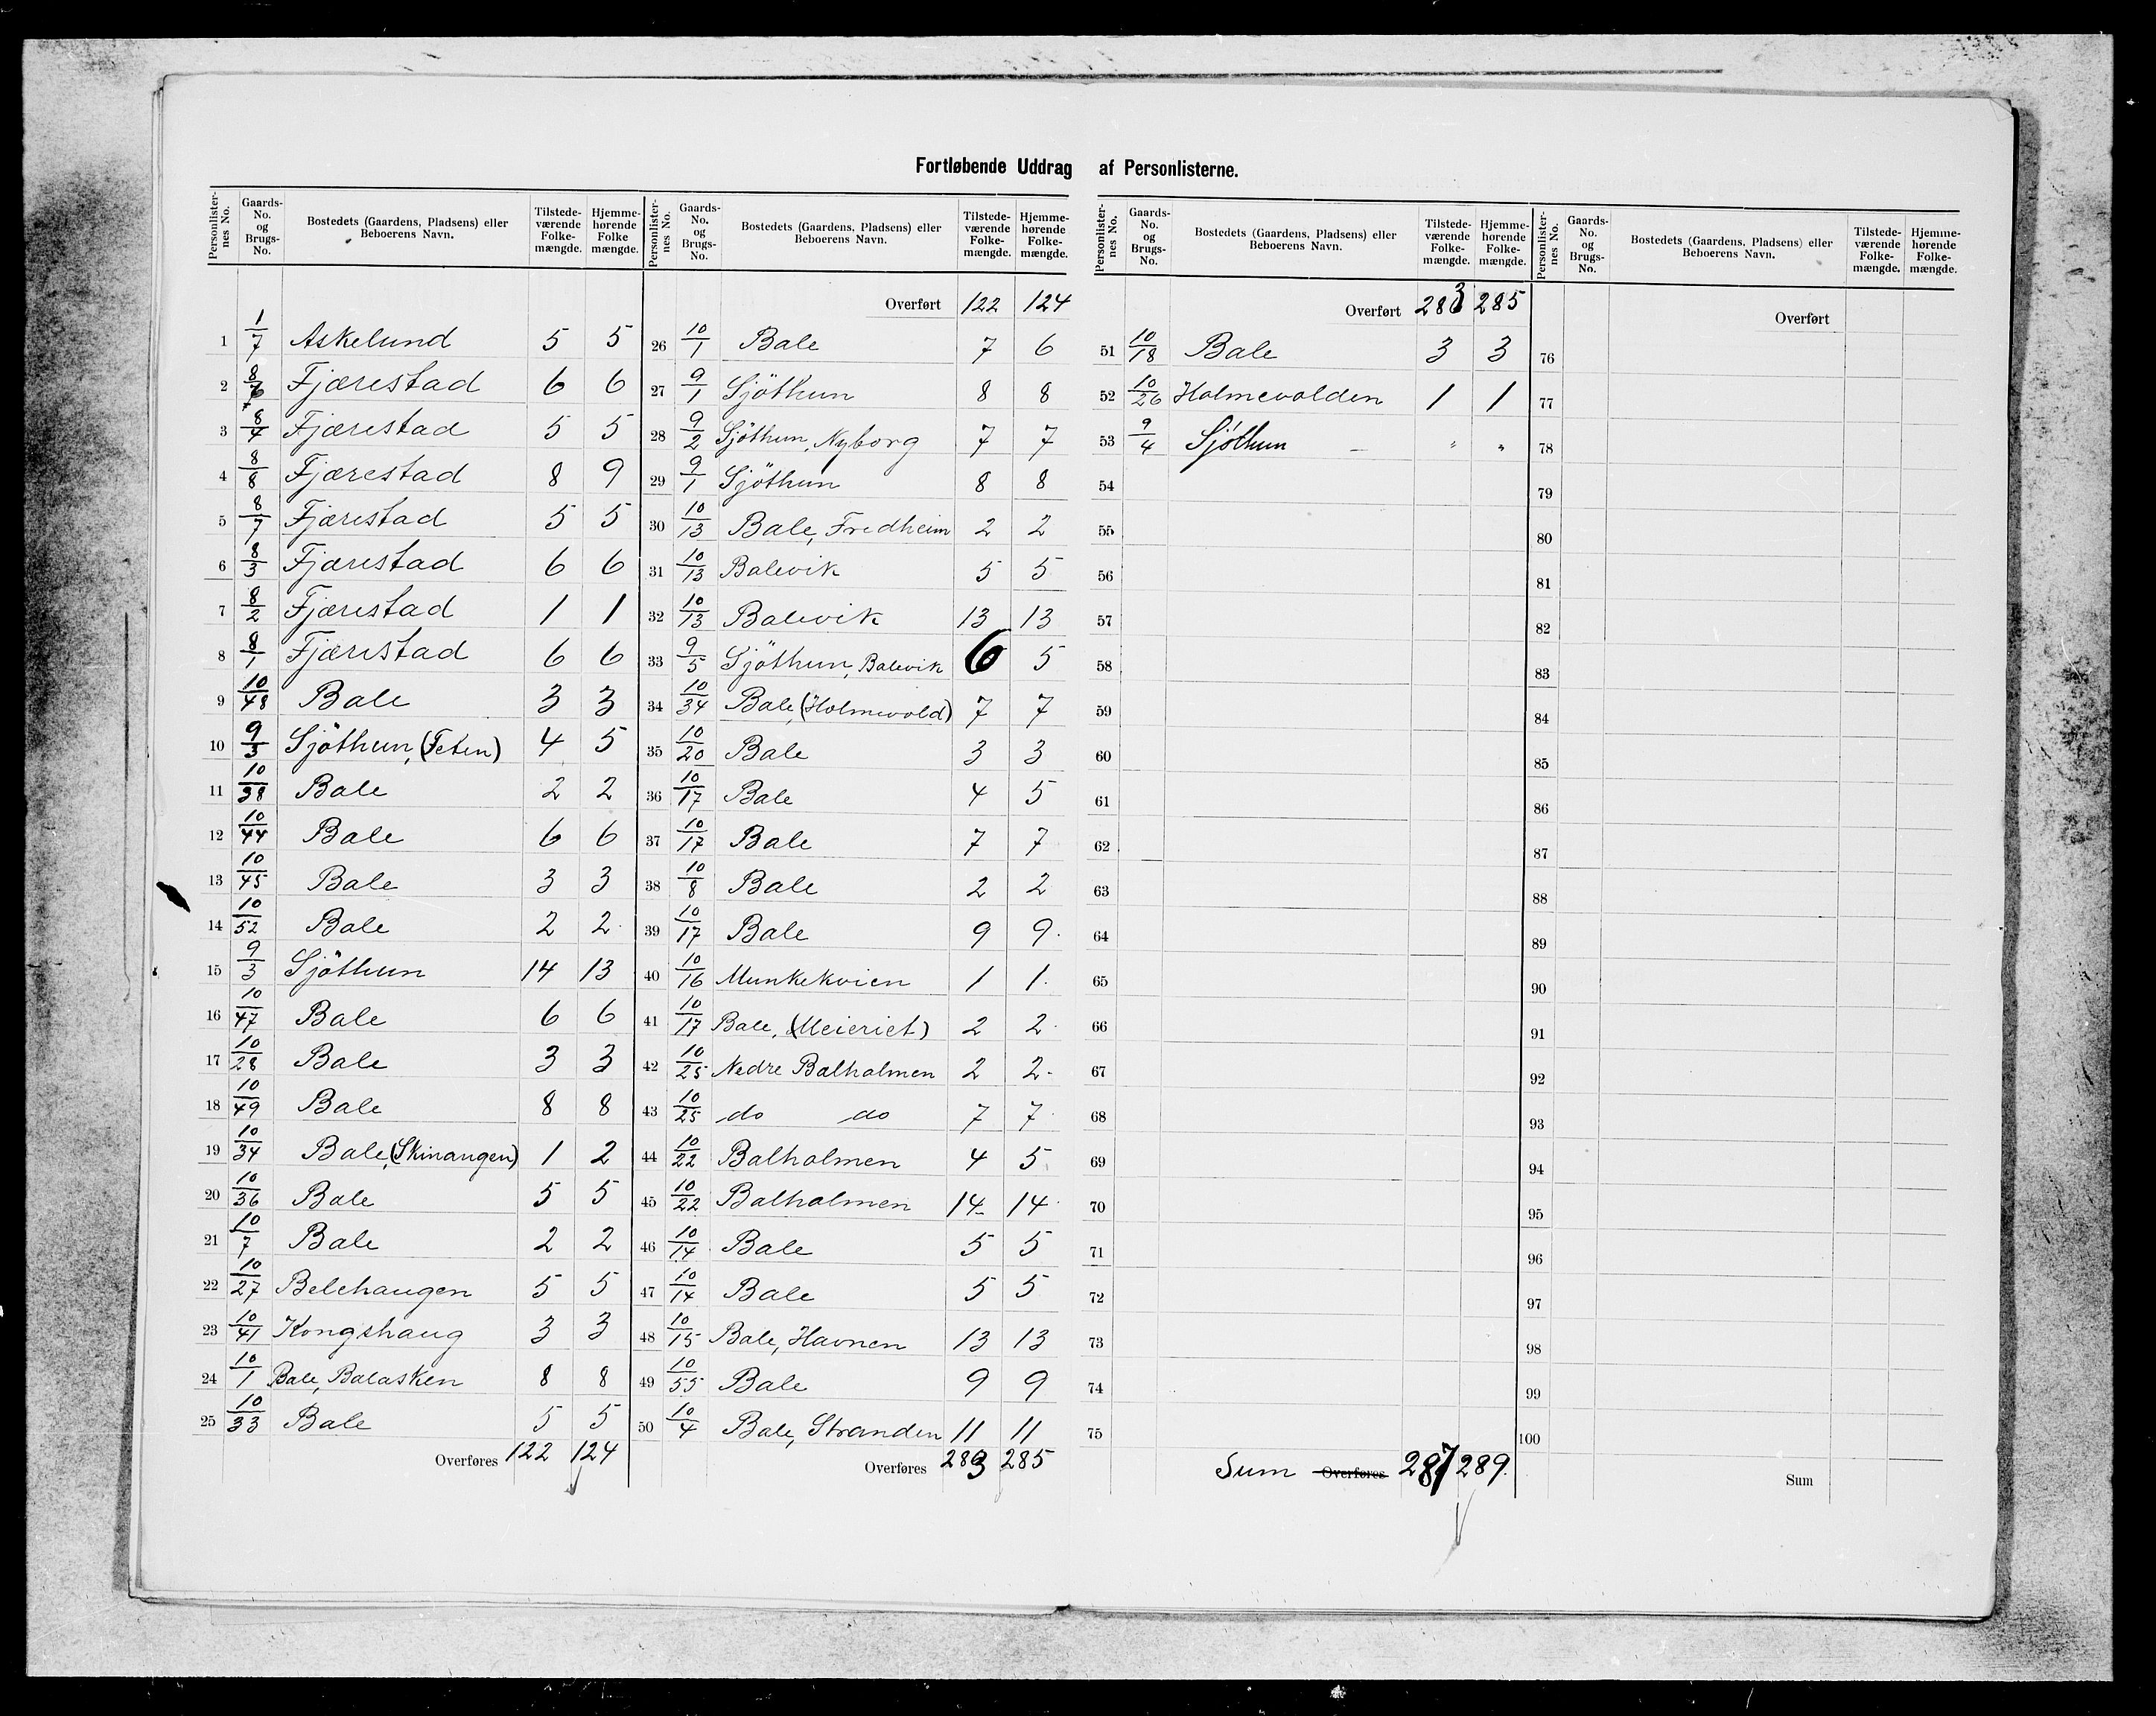 Fortløbende Uddrag af Personlisterne.
Personlister-nes No. | Gaards-No. og Brugs-No. | Bostedets (Gaardens, Pladsens) eller Beboerens Navn. | Tilstede-værende Folke-mængde. | Hjemme-hørende Folke mængde.
1 | 1/7 | Askelund | 5 | 5
2 | 8/6 | Fjærestad | 6 | 6
3 | 8/4 | Fjærestad | 5 | 5
4 | 8/8 | Fjærestad | 8 | 9
5 | 8/7 | Fjærestad | 5 | 5
6 | 8/3 | Fjærestad | 6 | 6
7 | 8/2 | Fjærestad | 1 | 1
8 | 8/1 | Fjærestad | 6 | 6
9 | 10/48 | Bale | 3 | 3
10 | 9/3 | Sjöthun, (Teten) | 4 | 5
11 | 10/38 | Bale | 2 | 2
12 | 10/44 | Bale | 6 | 6
13 | 10/45 | Bale | 3 | 3
14 | 10/52 | Bale | 2 | 2
15 | 9/3 | Sjöthun | 14 | 13
16 | 10/47 | Bale | 6 | 6
17 | 10/28 | Bale | 3 | 3
18 | 10/49 | Bale | 8 | 8
19 | 10/34 | Bale, (Skinangen) | 1 | 2
20 | 10/36 | Bale | 5 | 5
21 | 10/7 | Bale | 2 | 2
22 | 10/27 | Belehaugen | 5 | 5
23 | 10/41 | Kongshaug | 3 | 3
24 | 10/1 | Bale, Balasken | 8 | 8
25 | 10/33 | Bale | 5 | 5
Overføres 122 | 124
Personlister-nes No. | Gaards-No. og Brugs-No. | Bostedets (Gaardens, Pladsens) eller Beboerens Navn. | Tilstede-værende Folke-mængde. | Hjemme-hørende Folke-mængde.
Overført 122 | 124
26 | 10/1 | Bale | 7 | 6
27 | 9/1 | Sjöthun | 8 | 8
28 | 9/2 | Sjöthun, Nyborg | 7 | 7
29 | 9/1 | Sjöthun | 8 | 8
30 | 10/13 | Bale, Fredheim | 2 | 2
31 | 10/13 | Balevik | 5 | 5
32 | 10/13 | Balevik | 13 | 13
33 | 9/5 | Sjöthun, Balevik | 6 | 5
34 | 10/34 | Bale, (Holmevold) | 7 | 7
35 | 10/20 | Bale | 3 | 3
36 | 10/17 | Bale | 4 | 5
37 | 10/17 | Bale | 7 | 7
38 | 10/8 | Bale | 2 | 2
39 | 10/17 | Bale | 9 | 9
40 | 10/16 | Munkekvien | 1 | 1
41 | 10/17 | Bale, (Meieriet) | 2 | 2
42 | 10/25 | Nedre Balholmen | 2 | 2
43 | 10/25 | do do | 7 | 7
44 | 10/22 | Balholmen | 4 | 5
45 | 10/22 | Balholmen | 14 | 14
46 | 10/14 | Bale | 5 | 5
47 | 10/14 | Bale | 5 | 5
48 | 10/15 | Bale, Havnen | 13 | 13
49 | 10/55 | Bale | 9 | 9
50 | 10/4 | Bale, Stranden | 11 | 11
Overføres 283 | 285
Personlister-nes No. | Gaards-No. og Brugs-No. | Bostedets (Gaardens, Pladsens) eller Beboerens Navn. | Tilstede-værende Folke-mængde. | Hjemme-hørende Folke-mængde.
Overført 283 | 285
51 | 10/18 | Bale | 3 | 3
52 | 10/26 | Holmevolden | 1 | 1
53 | 9/4 | Sjöthun – | " | "
54
55
56
57
58
59
60
61
62
63
64
65
66
67
68
69
70
71
72
73
74
75
Sum Overføres 287 | 289.
Personlister-nes No. | Gaards-No. og Brugs-No. | Bostedets (Gaardens, Pladsens) eller Beboerens Navn. | Tilstede-værende Folke-mængde. | Hjemme-hørende Folke-mængde.
Overført
76
77
78
79
80
81
82
83
84
85
86
87
88
89
90
91
92
93
94
95
96
97
98
99
100
Sum